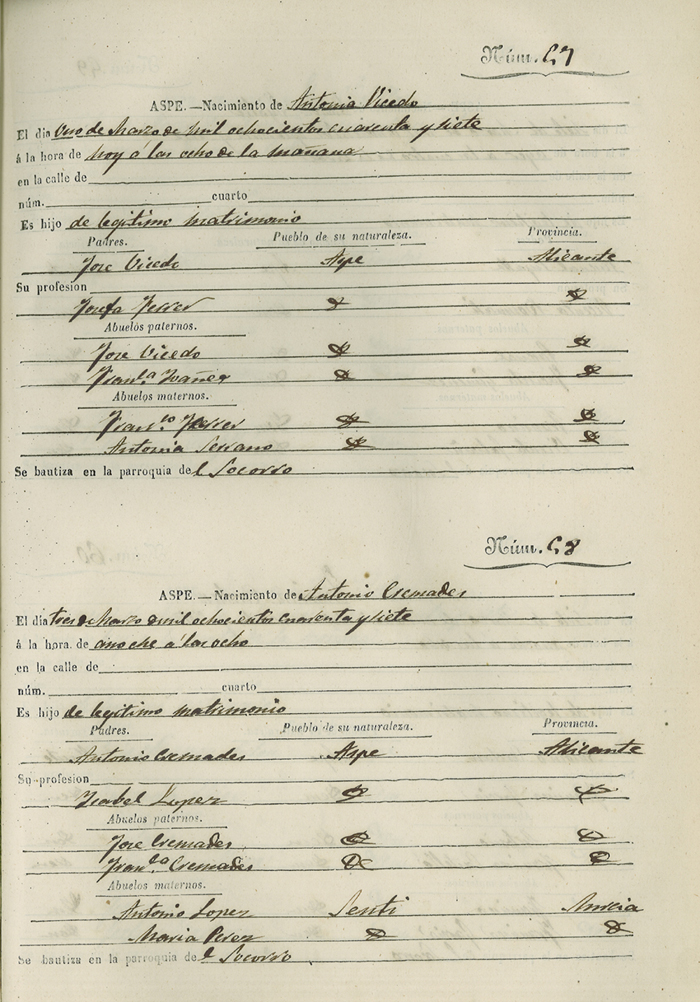 Núm. 57
ASPE.—Nacimiento de Antonia Vicedo
El dia uno de Marzo de mil ochocientos cuarenta y siete
á la hora de hoy á las ocho de la mañana
en la calle de
núm. cuarto
Es hijo de legitimo matrimonio
Padres. Pueblo de su naturaleza. Provincia.
Jose Vicedo Aspe Alicante
Su profesion
Josefa Ferrer
Abuelos paternos.
Jose Vicedo
Fran.ca Ibañez
Abuelos maternos.
Fran.co Ferrer
Antonia Serrano
Se bautiza en la parroquia del Socorro
Núm. 58
ASPE.—Nacimiento de Antonio Cremades
El día tres de Marzo de mil ochocientos cuarenta y siete
á la hora de anoche á las ocho
en la calle de
núm. cuarto
Es hijo de legitimo matrimonio
Padres. Pueblo de su naturaleza. Provincia.
Antonio Cremades Aspe Alicante
Su profesion
Ysabel Lopez
Abuelos paternos.
Jose Cremades
Fran.ca Cremades
Abuelos maternos.
Antonio Lopez Murcia
Maria Perez
Se bautiza en la parroquia del Socorro